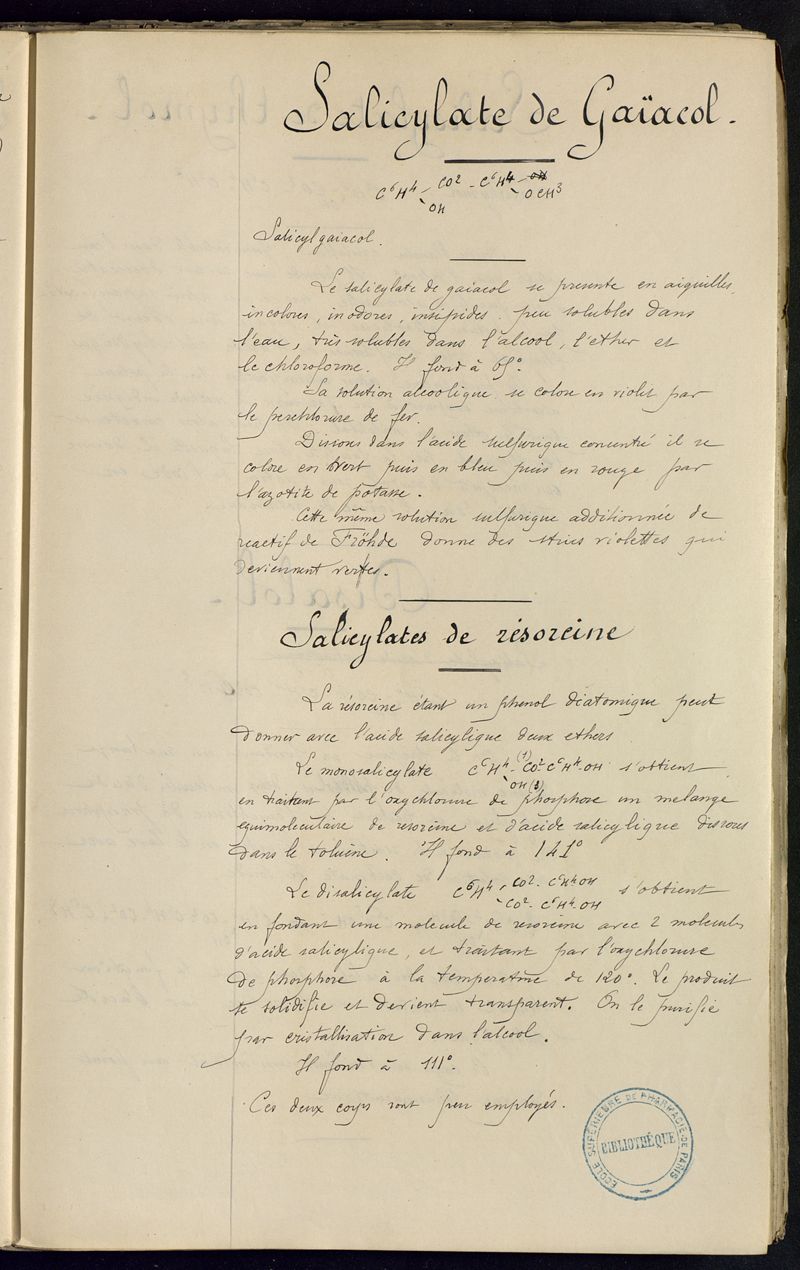 Salicylate de Gaïacol.
C⁶H⁴ - CO² - C⁶H⁴ - OH
- OH - OCH³
Salicylgaiacol.
Le salicylate de gaiacol se présente en aiguilles,
incolores, inodores, insipides. peu solubles dans
l'eau, très solubles dans l'alcool, l'ether et
le chloroforme. Il fond à 65°.
Sa solution alcoolique se colore en violet par
le perchlorure de fer.
Dissous dans l'acide sulfurique concentré il se
colore en vert puis en bleu puis en rouge par
l'azotite de potasse.
Cette même solution sulfurique additionnée de
reactif de Fröhde donne des stries violettes qui
deviennent vertes.
Salicylates de résorcine
La résorcine étant un phenol diatomique peut
donner avec l'acide salicylique deux ethers
Le monosalicylate C⁶H⁴ - (1) CO² - C⁶H⁴ - OH s'obtient
- OH (2)
en traitant par l'oxychlorure de phosphore un melange
equimoleculaire de resorcine et d'acide salicylique dissous
dans le toluène. Il fond à 141°
Le disalicylate C⁶H⁴ - CO² - C⁶H⁴OH s'obtient
- CO² - C⁶H⁴-OH
en fondant une molecule de resorcine avec 2 molecules
d'acide salicylique, et traitant par l'oxychlorure
de phosphore à la temperature de 120°. Le produit
se solidifie et devient transparent. On le purifie
par cristallisation dans l'alcool.
Il fond à 111°.
Ces deux corps sont peu employés.
ECOLE SUPÉRIEURE DE PHARMACIE DE PARIS
BIBLIOTHÈQUE